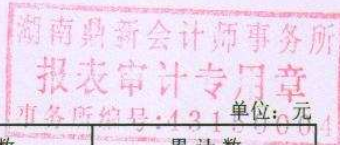 湖南鼎新会计师事务所
报表审计专用章
事务所编号:43100004
单位:元
数
累计数